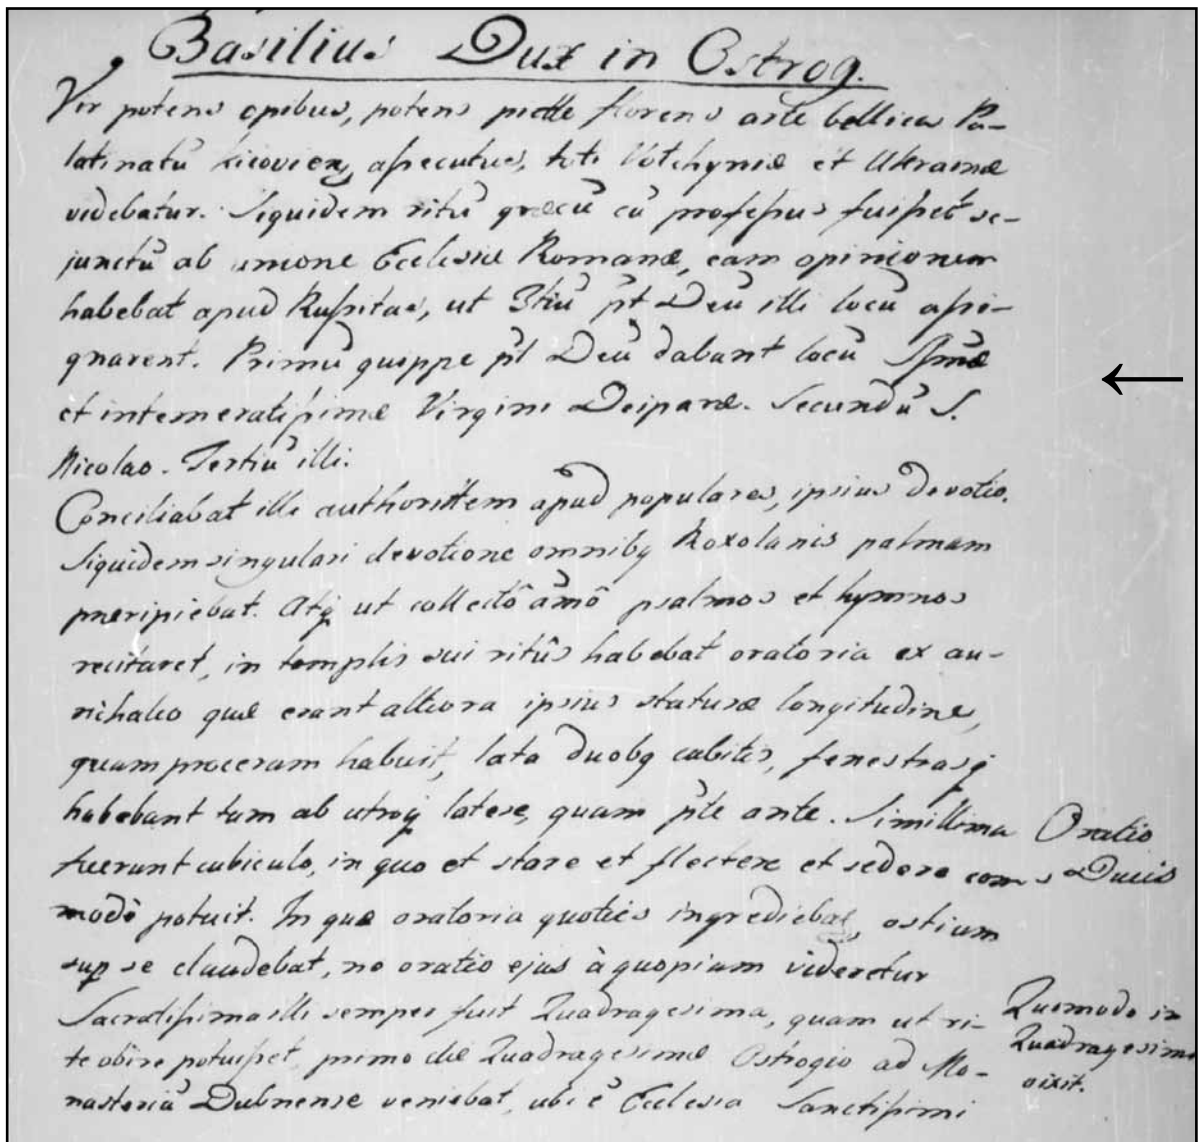 Basilius Dux in Ostrog.
Vir potens opibus, potens pietте florens arte bellica Pa-
latinatũ assecutus, toti Volhyniæ et Ukrainæ
videbatur. Siquidem ritũ græcũ cũ professus fuisset se-
junctũ ab unione Ecclesiæ Romanæ, eam opinionem
habebat apud Russitas, ut 3tiũ pt Deũ illi locũ assi-
gnarent. Primũ quippe pt Deũ dabant locũ Ssmæ
et intemeratissimæ Virgini Deiparæ. Secundũ S.
Nicolao. Tertiũ illi.
Conciliabat illi authorittem apud populares, ipsius devotio.
Siquidem singulari devotione omnibq Roxolanis palmam
præripiebat. Atq ut collectô amô psalmos et hymnos
recitaret, in templis sui ritûs habebat oratoria ex au-
richalco quæ erant altiora ipsius staturæ longitudine,
quam proceram habuit, lata duobq cubitis, fenestrasq
habebant tam ab utroq latere, quam pte ante. Simillima
fuerunt cubiculo, in quo et stare et flectere et sedere com-
modè potuit. In quæ oratoria quoties ingrediebat, ostium
sup se claudebat, ne oratio ejus à quopiam videretur
Oratio
Ducis
Sacratissima illi semper fuit Quadragesima, quam ut ri-
te obire potuisset, primo die Quadragesimæ Ostrogio ad Mo-
nasteriũ Dubnense veniebat, ubi ẽ Ecclesia Sanctissimi
Quomodo in
Quadragesima
vixit.